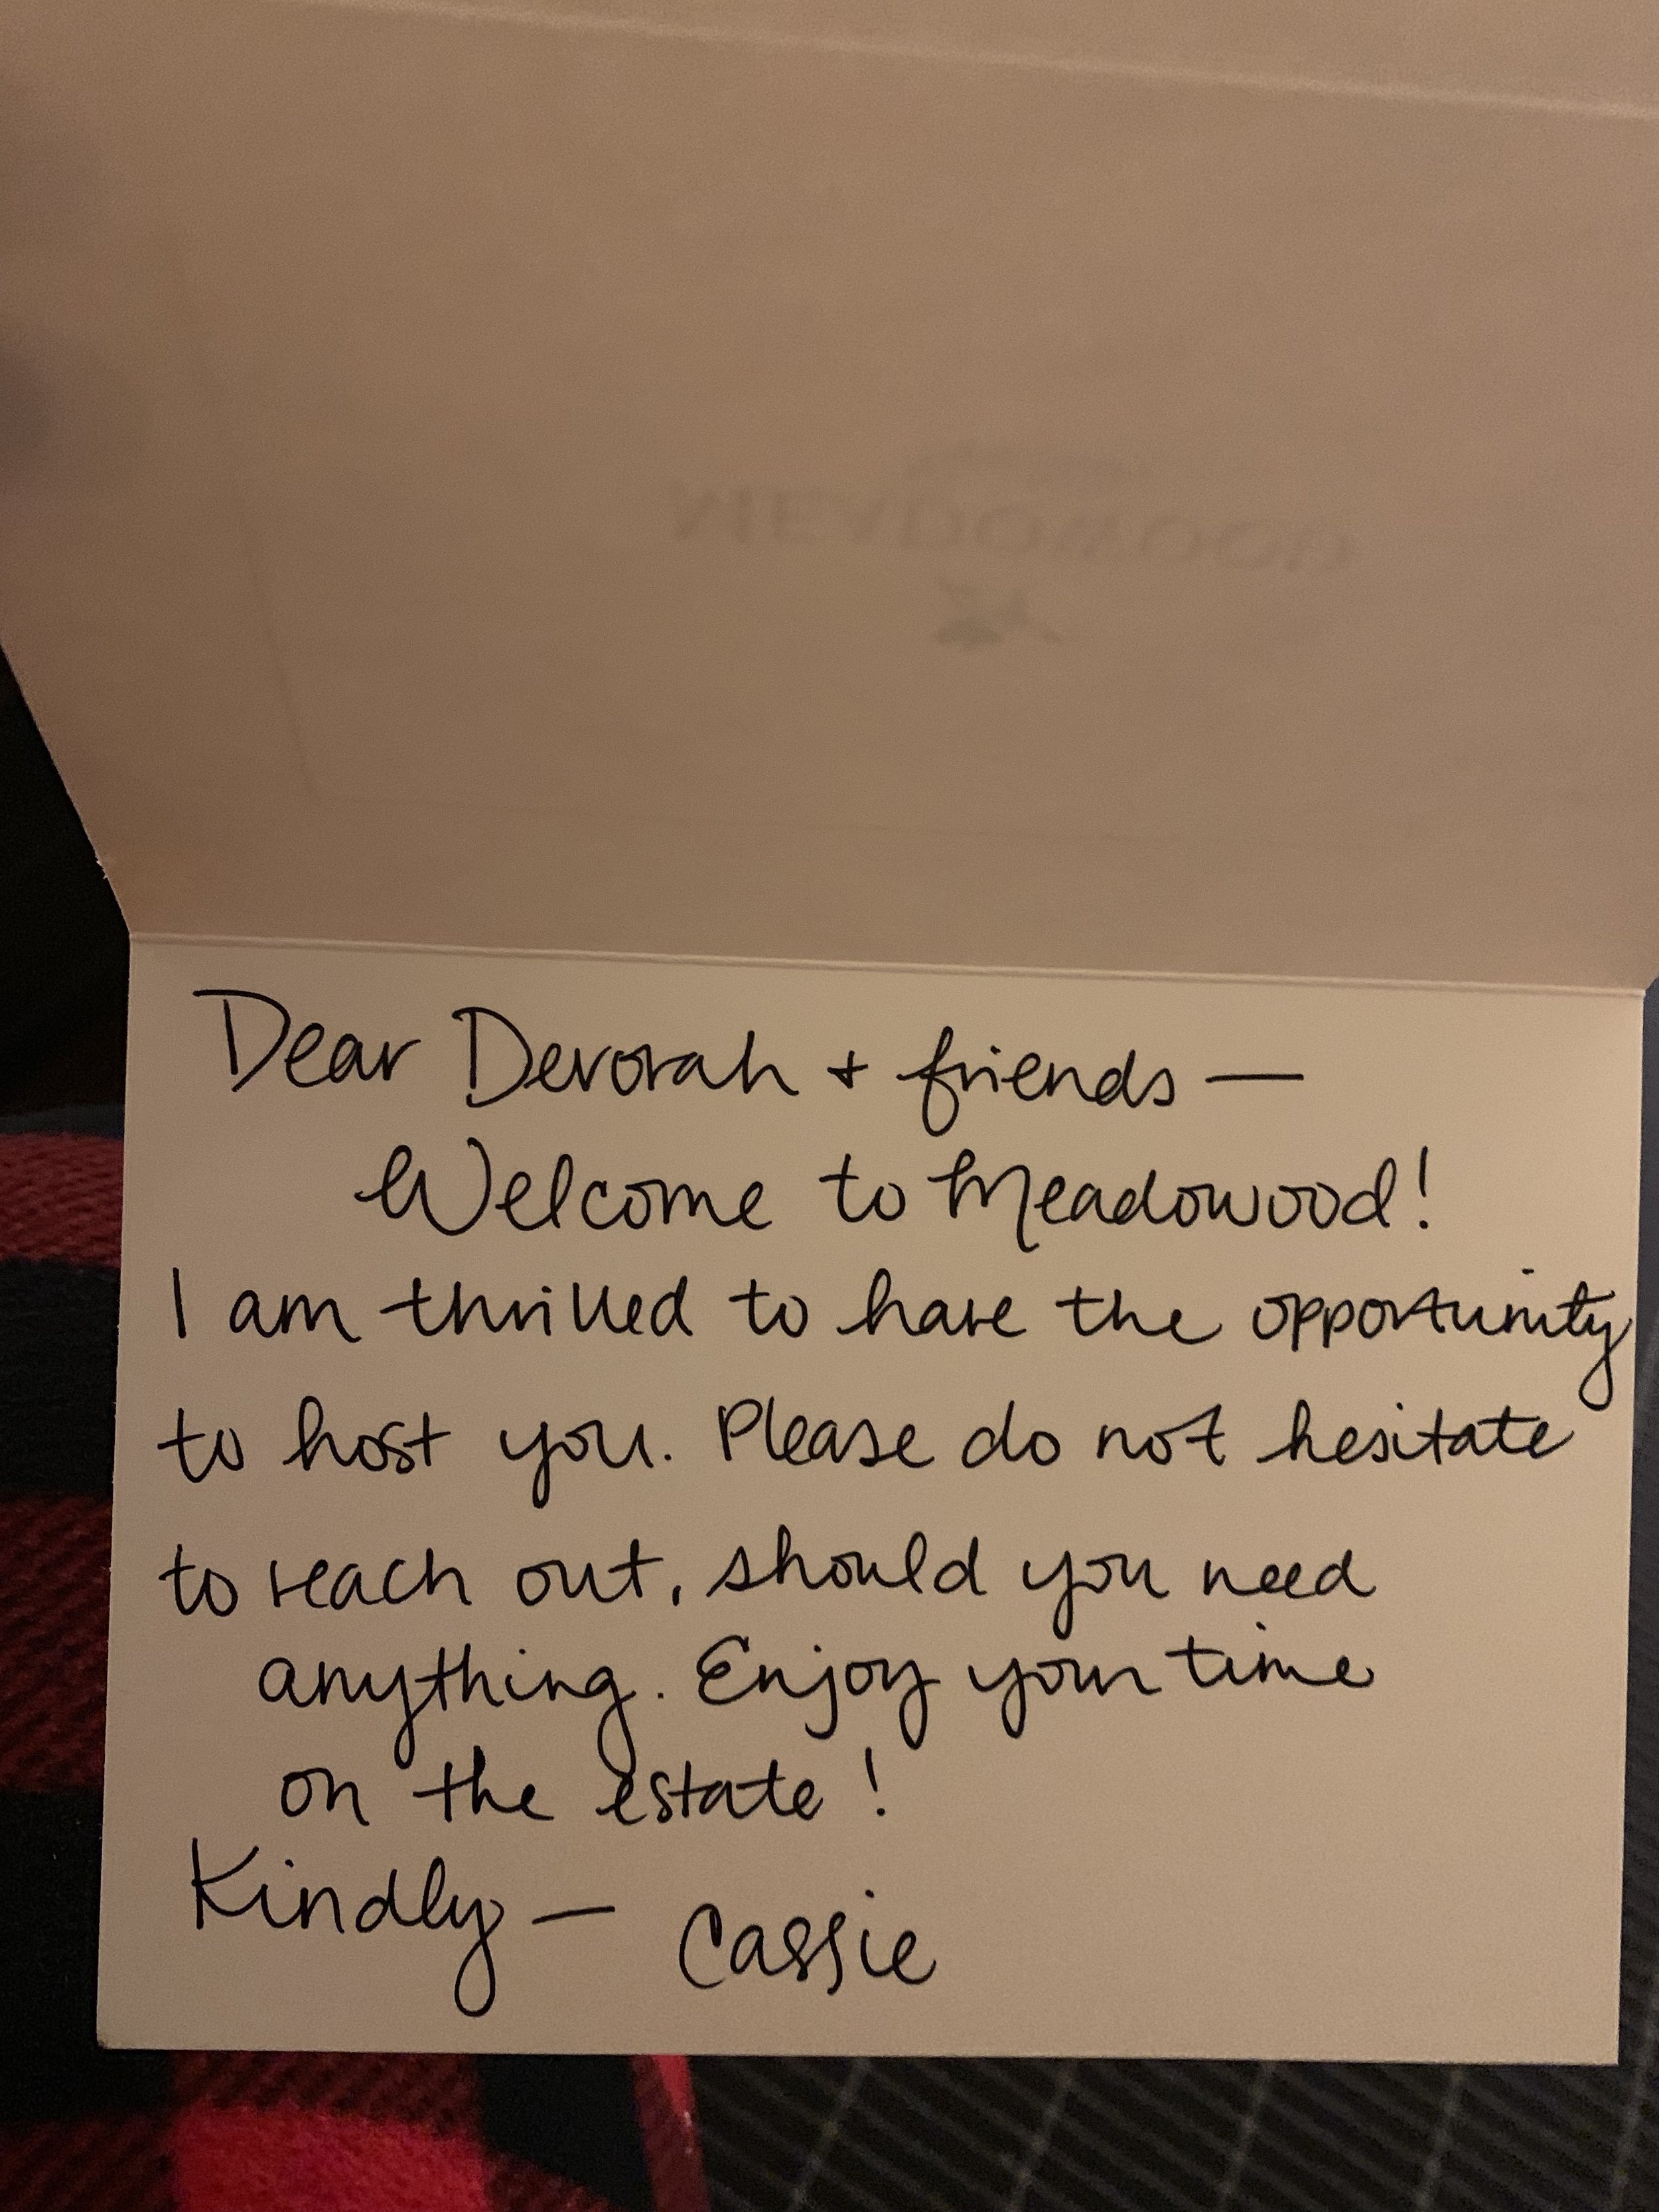 MEADOWOOD
Dear Devorah + friends —
Welcome to Meadowood!
I am thrilled to have the opportunity
to host you. Please do not hesitate
to reach out, should you need
anything. Enjoy your time
on the estate!
Kindly — Cassie